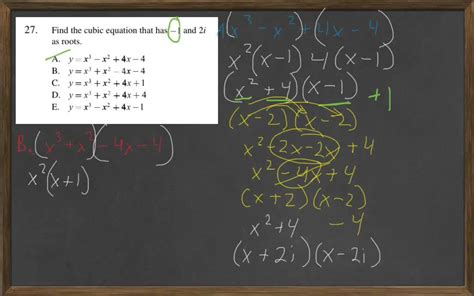 27. Find the cubic equation that has −1 and 2i
as roots.
A. y = x³ − x² + 4x − 4
B. y = x³ + x² − 4x − 4
C. y = x³ + x² + 4x + 1
D. y = x³ + x² + 4x + 4
E. y = x³ − x² + 4x − 1
B. (x³ + x²)(−4x − 4)
x²(x+1)
x³ − x² + 4x − 4)
x²(x−1) 4(x−1)
(x² + 4)(x−1) +1
(x−2)(x−2)
x² − 2x − 2x + 4
x² − 4x + 4
(x+2)(x−2)
x² + 4 − 4
(x + 2i)(x − 2i)